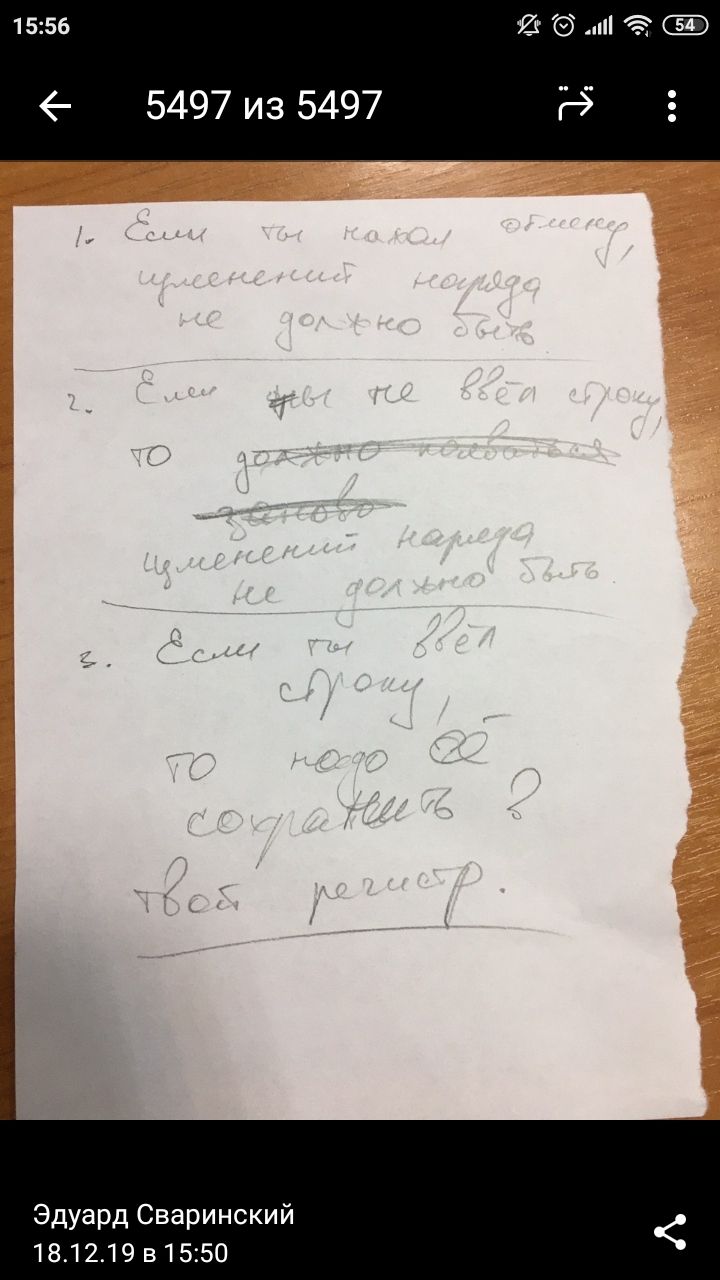 15:56
54
5497 из 5497
1. Если ты нажал отмену,
изменений наряда
не должно быть
2. Если ты не ввёл строку,
то должно
заново
изменений наряда
не должно быть.
3. Если ты ввёл
строку,
то надо её
сохранить ?
твой регистр.
Эдуард Сваринский
18.12.19 в 15:50